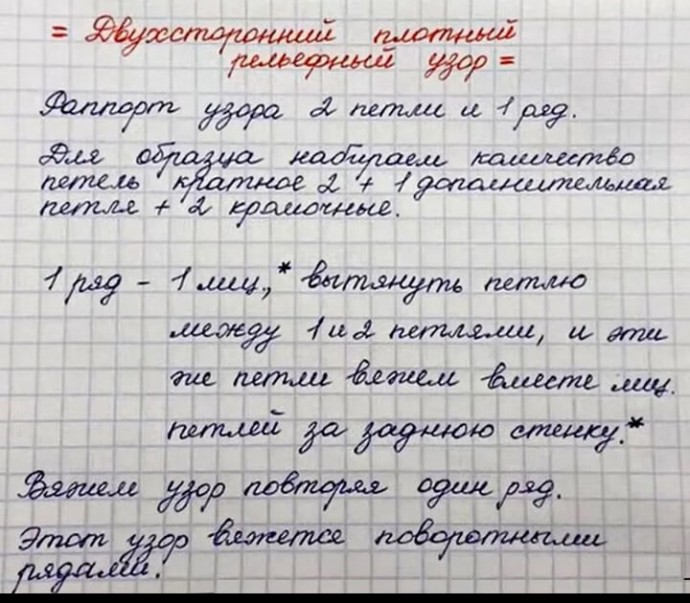 = Двухсторонний плотный
рельефный узор =
Раппорт узора 2 петли и 1 ряд.
Для образца набираем количество
петель кратное 2 + 1 дополнительная
петля + 2 кромочные.
1 ряд - 1 лиц.,* вытянуть петлю
между 1 и 2 петлями, и эти
же петли вяжем вместе лиц.
петлей за заднюю стенку.*
Вяжем узор повторяя один ряд.
Этот узор вяжется поворотными
рядами.